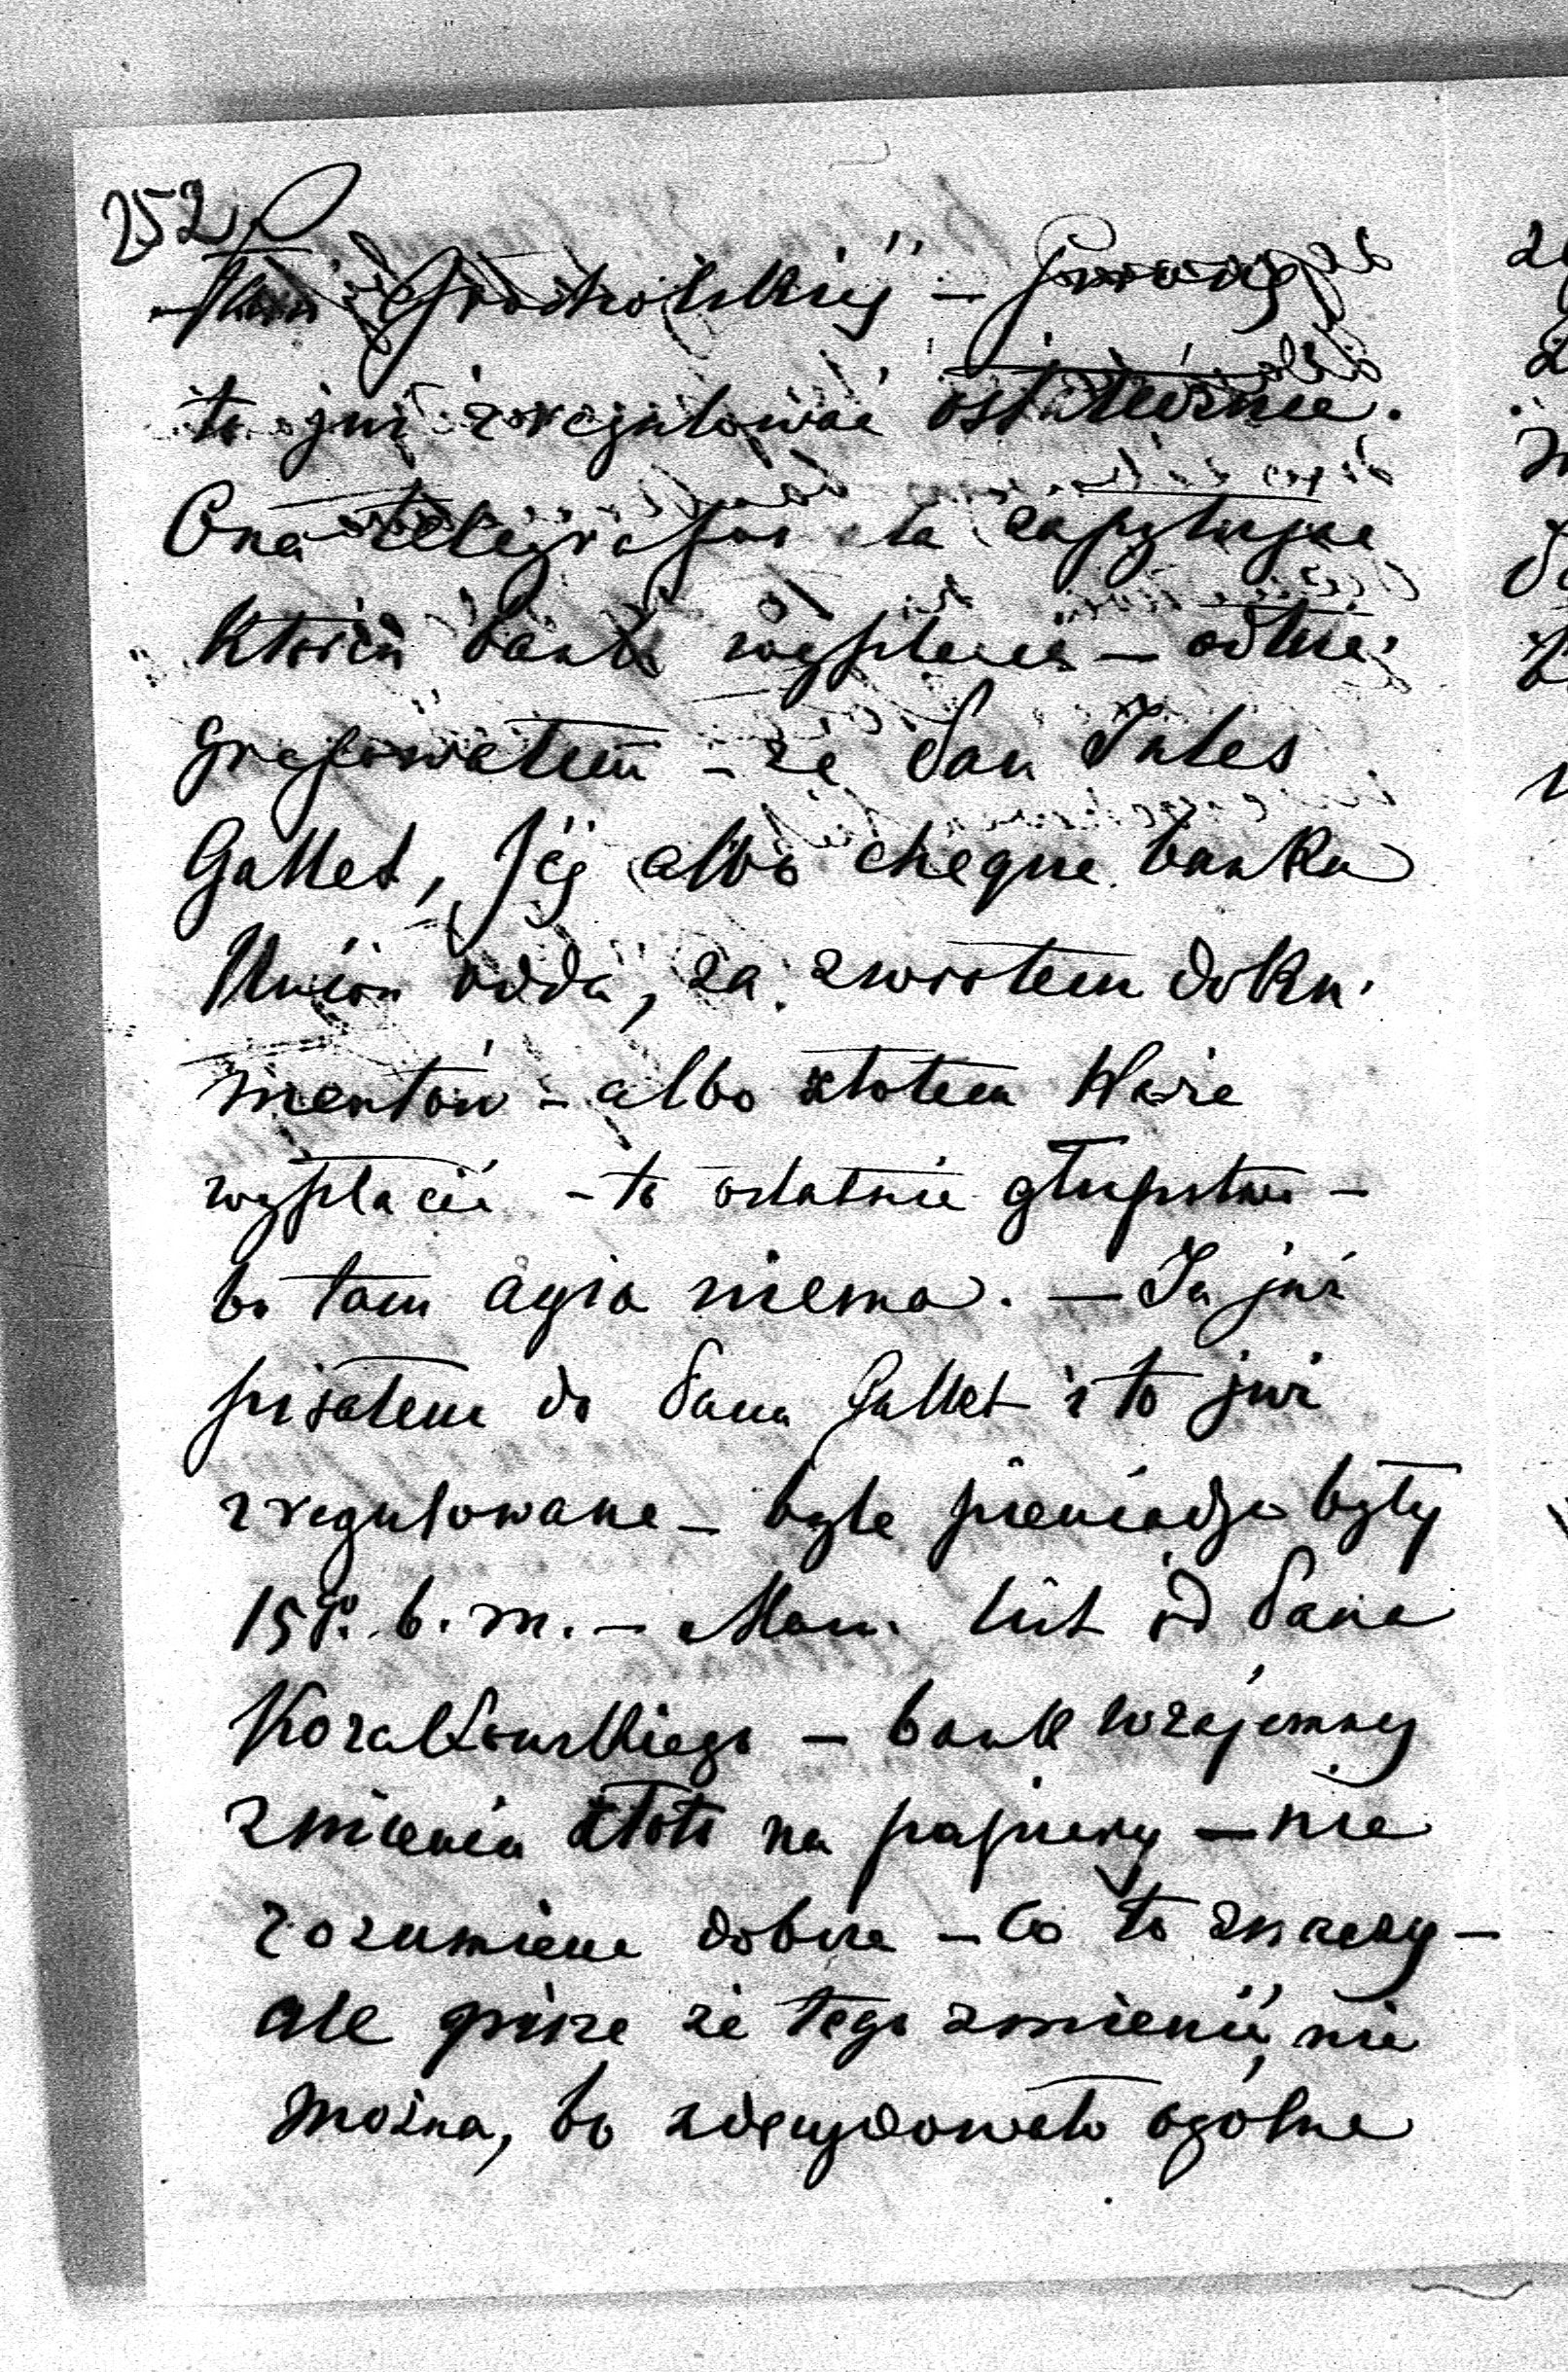 252
Pani Grocholskiej – proszę
to już zregulować ostatecznie.
Ona telegrafowała zapytując
który bank wypłaci – odtele-
grafowałem – że Pan Jules
Gallet, Jej albo cheque banku
Union odda, za zwrotem doku-
mentów – albo złotem każe
wypłacić – to ostatnie głupstwo –
bo tam agia niema. – Ja już
pisałem do Pana Gallet i to już
zregulowane – byle pieniądze były
15go. b. m. – Mam list od Pana
Kozakowskiego – bank wzajemny
zmienia złoto na papiery – nie
rozumiem dobrze – co to znaczy –
ale pisze że tego zmienić nie
można, bo zdecydowało ogólne